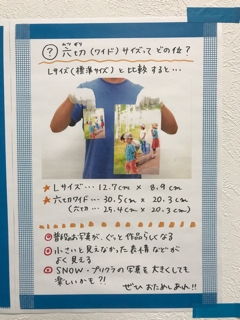 ? 六切(ワイド)サイズって どの位?
むつ ぎり
Lサイズ(標準サイズ) と 比較 すると…
★ Lサイズ… 12.7cm × 8.9cm
★ 六切ワイド… 30.5cm × 20.3cm
(六切… 25.4cm × 20.3cm)
普段のお写真が、ぐっと作品らしくなる
小さいと見えなかった表情などが
よく見える
SNOW・プリクラの写真を大きくしても
楽しいかも?!
ぜひ おためしあれ!!